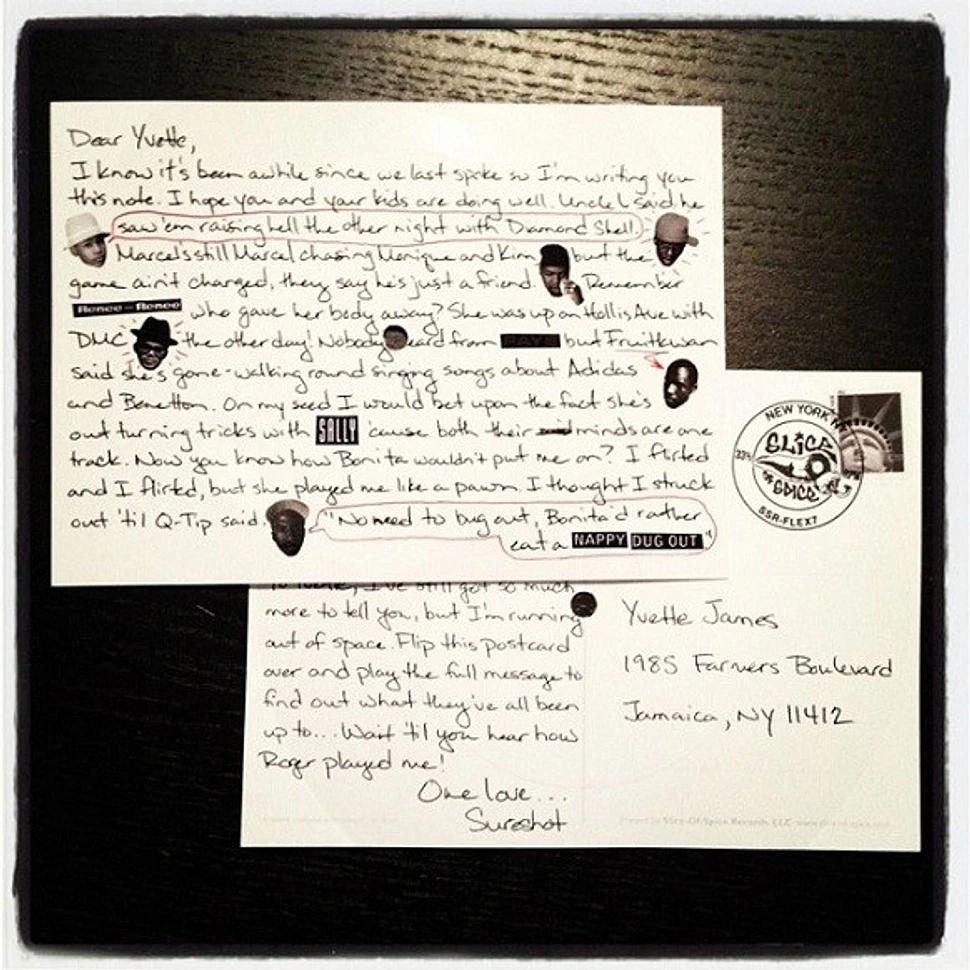 Dear Yvette,
I know it's been awhile since we last spoke so I'm writing you
this note. I hope you and your kids are doing well. Uncle L said he
saw 'em raising hell the other night with Diamond Shell.
Marcel's still Marcel chasing Monique and Kim but the
game ain't changed, they say he's just a friend. Remember
Renee-Renee who gave her body away? She was up on Hollis Ave with
DMC the other day! Nobody heard from but Fruitkwan
said she's gone-walking round singing songs about Adidas
and Benetton. On my seed I would bet upon the fact she's
out turning tricks with SALLY 'cause both their minds are one
track. Now you know how Bonita wouldn't put me on? I flirted
and I flirted, but she played me like a pawn. I thought I struck
out 'til Q-Tip said. "No need to bug out, Bonita'd rather
eat a NAPPY DUG OUT"
I've still got so much
more to tell you, but I'm running
out of space. Flip this postcard
over and play the full message to
find out what they've all been
up to... Wait 'til you hear how
Roger played me!
One love...
Sureshot
NEW YORK
SLICE
OF
SPICE
33⅓
SSR-FLEX7
Yvette James
1985 Farmers Boulevard
Jamaica, NY 11412
Slice-Of-Spice Records, LLC